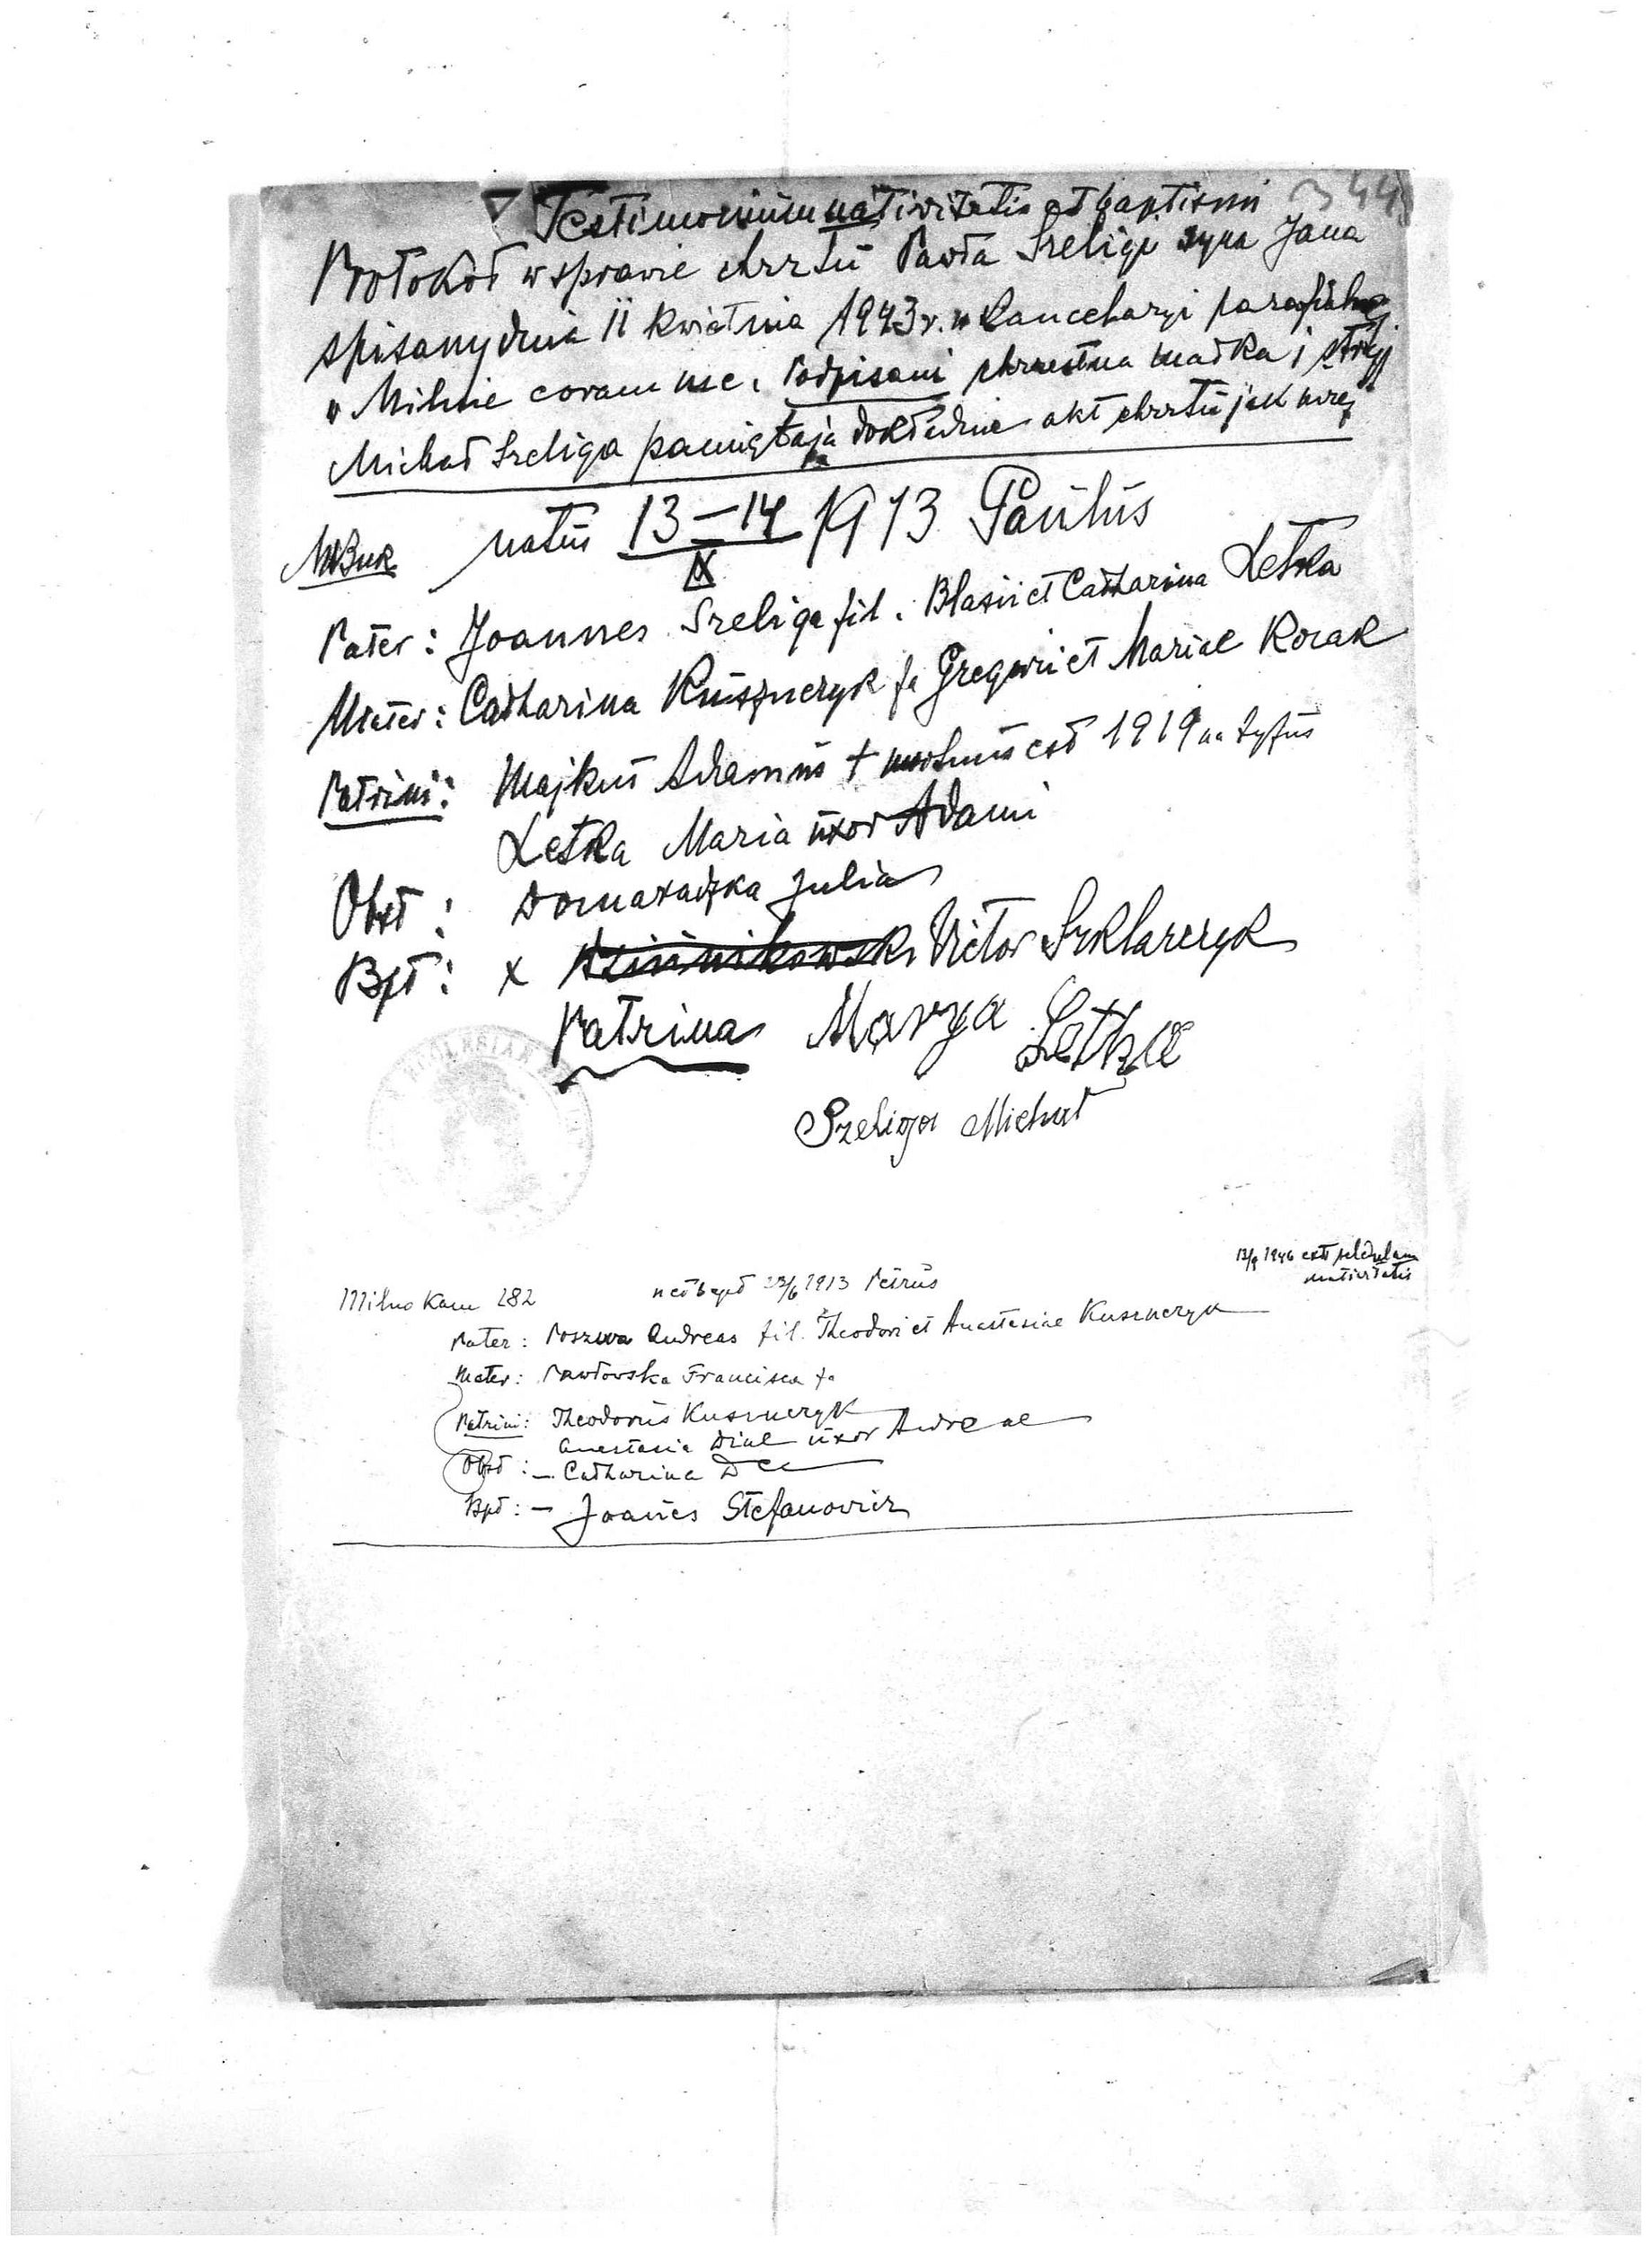 344
Testimonium nativitatis et baptismi
Protokół w sprawie chrztu Pawła Szeligi syna Jana
spisany dnia 11 kwietnia 1943 r. w kancelaryi parafialnej
w Milnie coram me. Podpisani chrzestna matka i stryj
Michał Szeliga pamiętają dokładnie akt chrztu jak niżej
natus 13–14 1913 Paulus
X
Pater: Joannes Szeliga fil. Blasii et Catharina Letka
Mater: Catharina Kuszneryk fa Gregorii et Mariae Kozak
Patrini: Majkut Adamus + mortuus est 1919 na tyfus
Letka Maria uxor Adami
Obst: Domaradzka Julia
Bpt: x Victor Szklarczyk
Patrina Marya Letka
Szeliga Michał
13/9 1946 ext schedulam
nativitatis
Milno Kam 282 n et bapt 23/6 1913 Petrus
Pater: Poszwa Andreas fil. Theodori et Anastasiae Kuszneryk
Mater: Pawłowska Francisca fa
Patrini: Theodorus Kuszneryk
Anastasia uxor Andreae
Obst: – Catharina
Bpt: – Joannes Stefanowicz